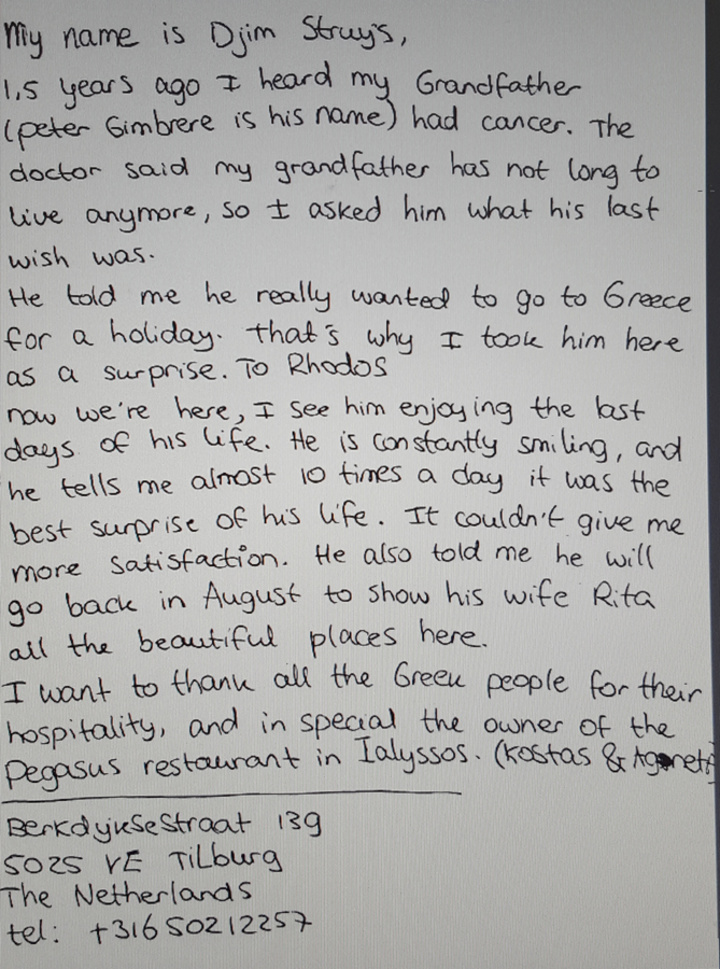 My name is Djim Struijs,
1,5 years ago I heard my Grandfather
(peter Gimbrere is his name) had cancer. The
doctor said my grandfather has not long to
live anymore, so I asked him what his last
wish was.
He told me he really wanted to go to Greece
for a holiday. that's why I took him here
as a surprise. To Rhodos
now we're here, I see him enjoying the last
days of his life. He is constantly smiling, and
he tells me almost 10 times a day it was the
best surprise of his life. It couldn't give me
more satisfaction. He also told me he will
go back in August to show his wife Rita
all the beautiful places here.
I want to thank all the Greek people for their
hospitality, and in special the owner of the
Pegasus restaurant in Ialyssos. (Kostas &
BerkdijkseStraat 139
5025 VE Tilburg
The Netherlands
tel: +31650212257